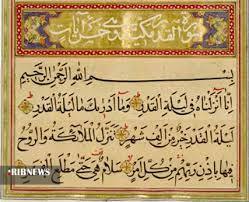 سورة القدر
بِسْمِ اللهِ الرَّحْمٰنِ الرَّحِيْمِ
اِنَّا اَنْزَلْنَاهُ فِي لَيْلَةِ الْقَدْرِ وَمَا اَدْرٰيكَ مَا لَيْلَةُ الْقَدْرِ
لَيْلَةُ الْقَدْرِ خَيْرٌ مِنْ اَلْفِ شَهْرٍ تَنَزَّلُ الْمَلٰٓئِكَةُ وَالرُّوحُ
فِيهَا بِاِذْنِ رَبِّهِمْ مِنْ كُلِّ اَمْرٍ سَلَامٌ هِيَ حَتّٰى مَطْلَعِ الْفَجْرِ
RIBNEWS